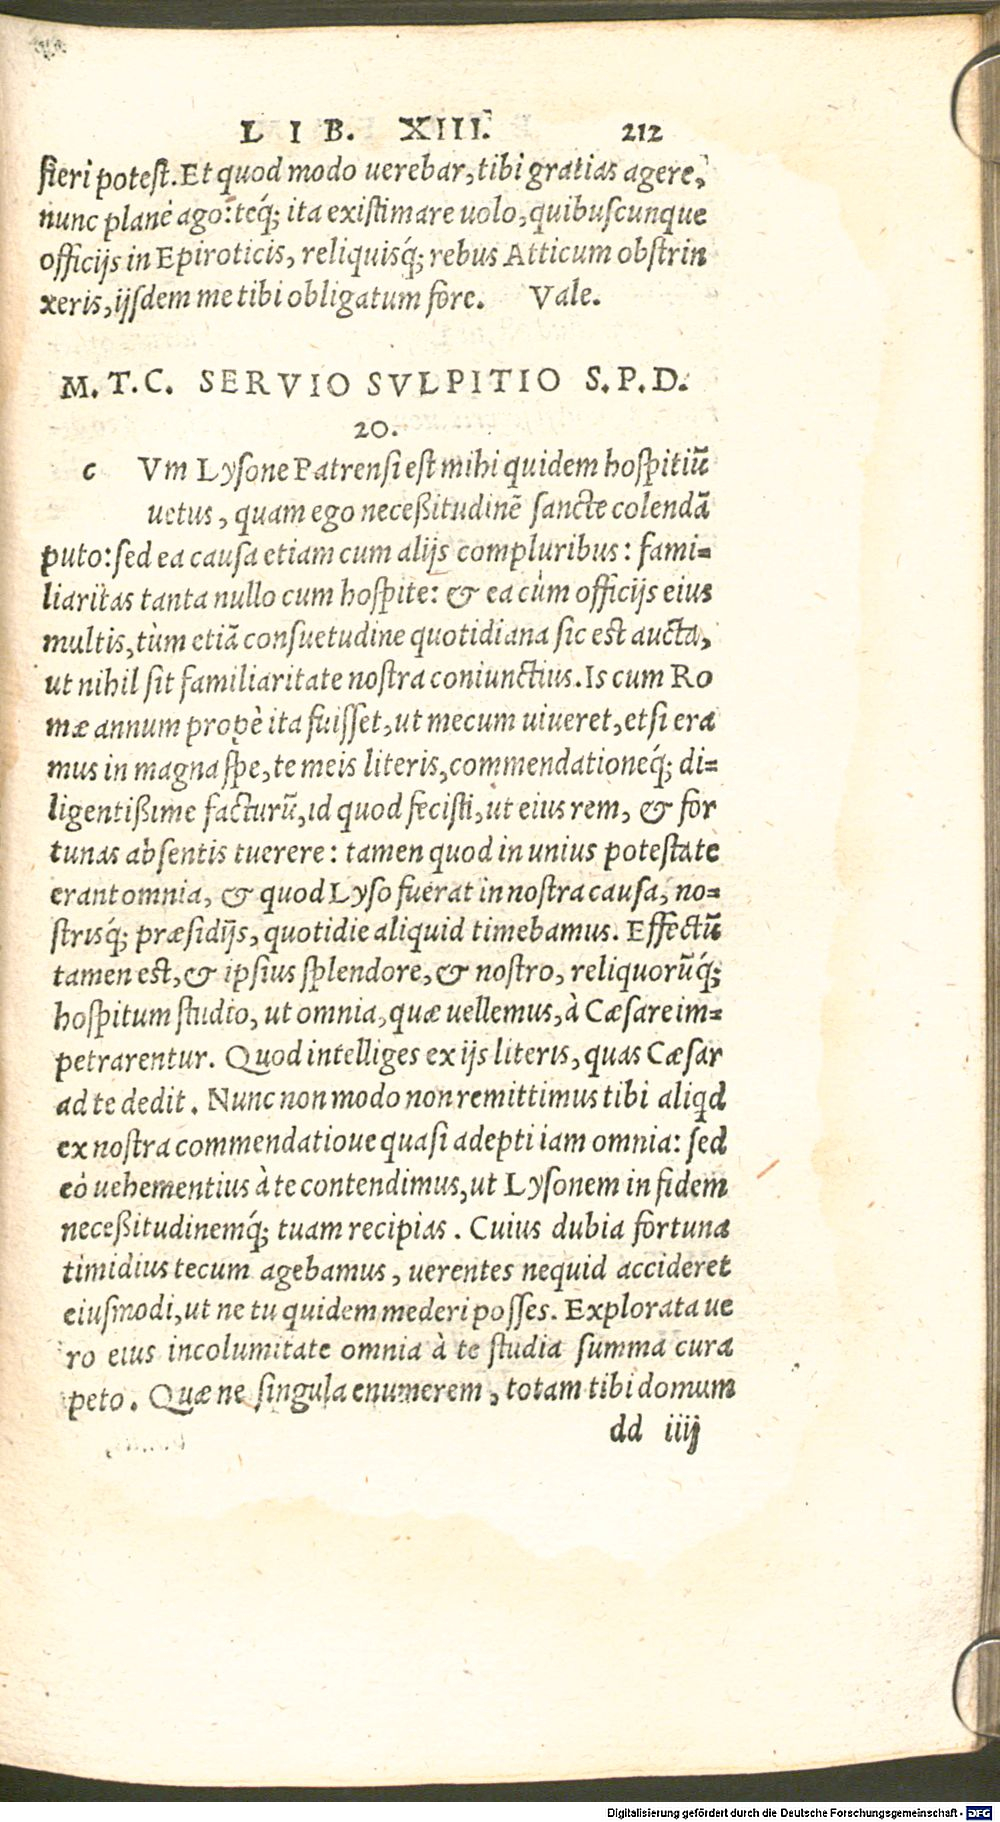 LIB. XIII. 212
fieri potest. Et quod modo uerebar, tibi gratias agere,
nunc planè ago: teq́; ita existimare uolo, quibuscunque
officijs in Epiroticis, reliquisq́; rebus Atticum obstrin
xeris, ijsdem me tibi obligatum fore. Vale.
M. T. C. SERVIO SVLPITIO S. P. D.
20.
c Vm Lysone Patrensi est mihi quidem hospitiũ
uetus, quam ego neceßitudinẽ sancte colendã
puto: sed ea causa etiam cum alijs compluribus: fami-
liaritas tanta nullo cum hospite: & ea cùm officijs eius
multis, tùm etiã consuetudine quotidiana sic est aucta,
ut nihil sit familiaritate nostra coniunctius. Is cum Ro
mæ annum propè ita fuisset, ut mecum uiueret, etsi era
mus in magna spe, te meis literis, commendationeq́; di-
ligentißime facturũ, id quod fecisti, ut eius rem, & for
tunas absentis tuerere: tamen quod in unius potestate
erant omnia, & quod Lyso fuerat in nostra causa, no-
strisq́; præsidijs, quotidie aliquid timebamus. Effectũ
tamen est, & ipsius splendore, & nostro, reliquorũq́;
hospitum studio, ut omnia, quæ uellemus, à Cæsare im-
petrarentur. Quod intelliges ex ijs literis, quas Cæsar
ad te dedit. Nunc non modo non remittimus tibi aliqd
ex nostra commendatioue quasi adepti iam omnia: sed
eò uehementius à te contendimus, ut Lysonem in fidem
neceßitudinemq́; tuam recipias. Cuius dubia fortuna
timidius tecum agebamus, uerentes nequid accideret
eiusmodi, ut ne tu quidem mederi posses. Explorata ue
ro eius incolumitate omnia à te studia summa cura
peto. Quæ ne singula enumerem, totam tibi domum
dd iiij
Digitalisierung gefördert durch die Deutsche Forschungsgemeinschaft - DFG